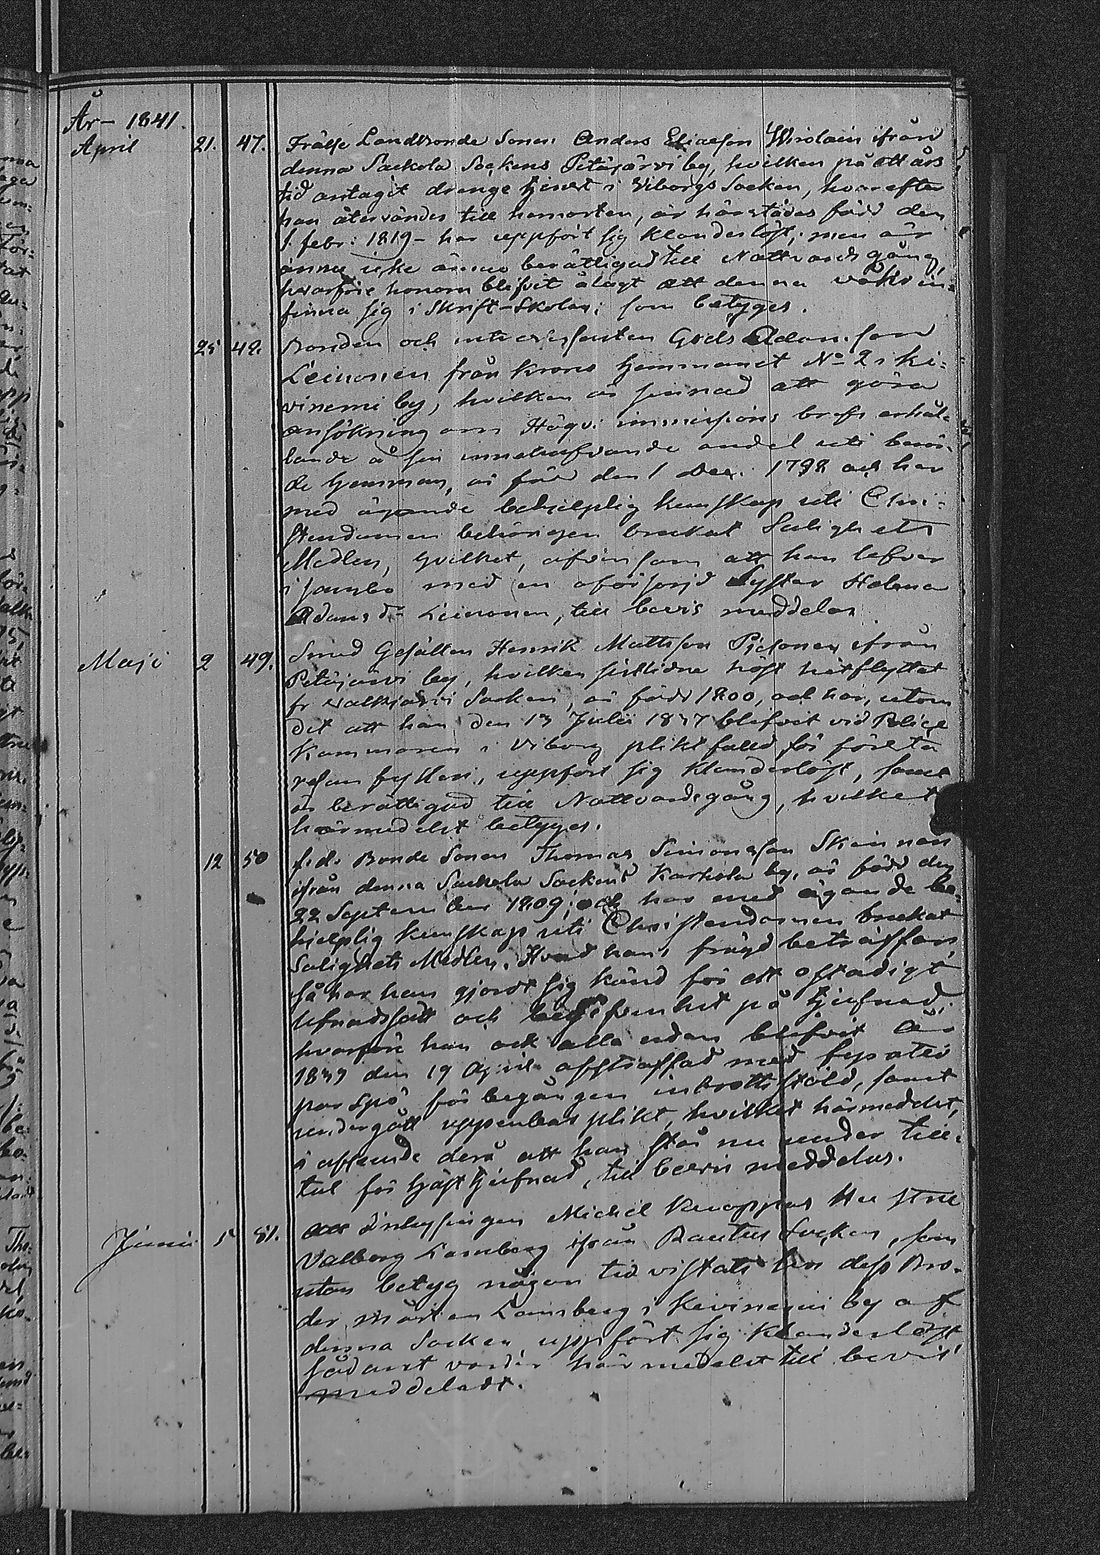 År 1841.
April 21. 47. Frälse Landbonde Sonen Anders Eliasson Wirolain ifrån
denna Sackola Sockens Petäjärvi by, hvilken på ett års
tid antagit drenge tjenst i Viborgs Socken, hvarefter
han återvänder till hemorten, är härstädes född den
1. febr: 1819 har uppfört sig klanderlöst; men är
ännu icke ännu berättigad till Nattvardsgång,
hvarföre honom blifvit ålagt att denna in-
finna sig i Skrift-Skolan; som betyges.
25 48. Bonden och Gods Adamsson
Leinonen från Krono Hemmanet No 2 i Ki-
vinemi by, hvilken är sinnad att göra
ansökning om immissions bref erhål-
lande å sin innehafvande andel uti berör-
de Hemman, är född den 1 Dec: 1798 och har
med ägande behjelplig kunskap uti Chri-
stendomen behörigen brukat Salighets
Medlen, hvilket, äfvensom att han lefver
i sambo med en oförsörjd Syster Helena
Adamsdr Leinonen, till bevis meddelas
Maji 2 49. Smed Gesällen Henrik Mattsson ifrån
Petäjärvi by, hvilken sistlidne höst hitflyttat
fr Valkjärvi Socken, är född 1800, och har, utom
det att han den 13 Julii 1837 blifvit vid Police
Kammaren i Viborg pliktfälld för första
resan fylleri, uppfört sig klanderlöst, samt
är berättigad till Nattvardsgång, hvilket
härmedelst betyges.
12 50 f.d. Bonde Sonen Thomas Simonsson Skinnari
ifrån denna Sackola Sockens Karhola by, är född den
22 September 1809; och har med ägande be-
hjelplig kunskap uti Christendomen brukat
Salighets Medlen. Hvad hans fräjd beträffar,
så har han gjort sig känd för ett ostadigt
lefnadssätt och begifvenhet på tjufnad
hvarföre han ock alla redan blifvit år
1839 den 19 April afstraffad med fyratio
par Spö för begången inbrotts stöld, samt
undergått uppenbar plikt, hvilket härmedelst,
i afseende derå att han står nu under till-
tal för tjufnad, till bevis meddelas.
Junii 5 51. Att Inhysingen Michel Hustru
Valborg Lamberg ifrån Rautus Socken, som
utan betyg någon tid vistats hos dess Bro-
der Mårten Lamberg i Kivinemi by af
denna Socken uppfört sig klanderlöst
sådant varder härmedelst till bevis
meddeladt.